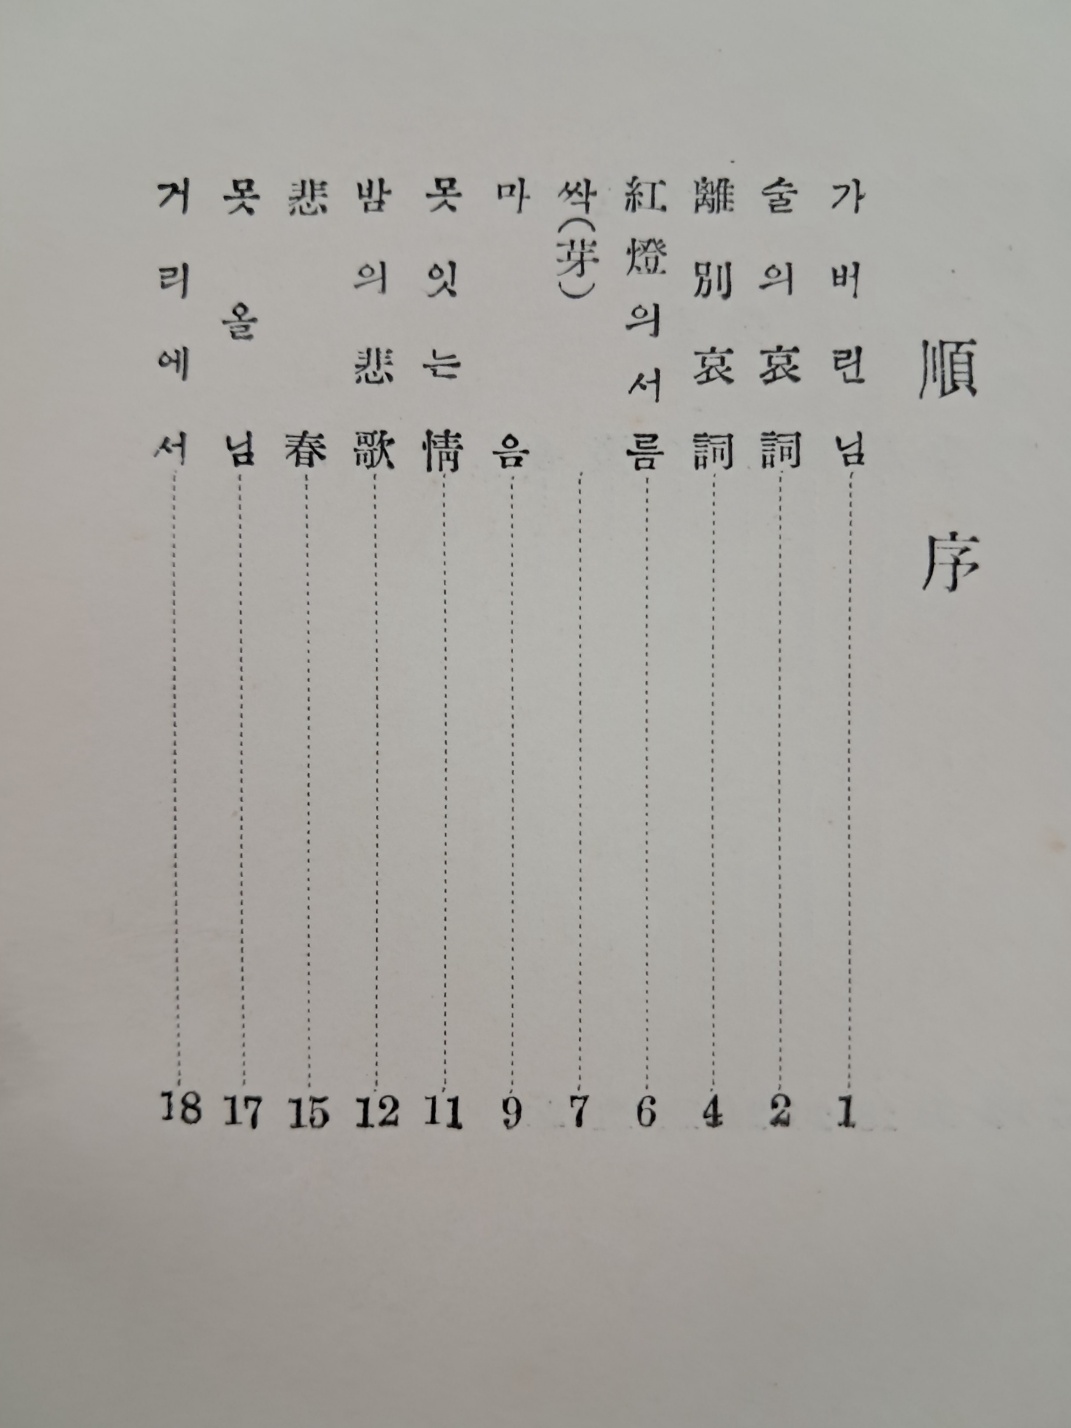 順序
가버린님 1
술의哀詞 2
離別哀詞 4
紅燈의서름 6
싹(芽) 7
마음 9
못잇는情 11
밤의悲歌 12
悲春 15
못올님 17
거리에서 18